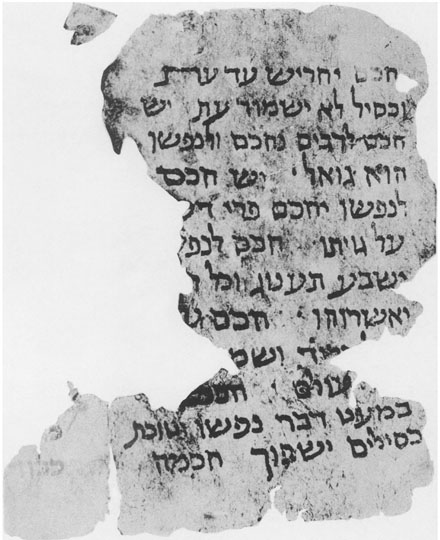 חכם יחריש עד עת
וכסיל לא ישמור עת יש
חכם לרבים נחכם ולנפשו
הוא גואל יש חכם
לנפשו יחכם פרי
על גויתו חכם
ישבע תענוג וכל
ואשרוהו חכם
ושמ
עולם חכם
במעט דבר נפשו וטובת
כסילים ישפוך חכמה